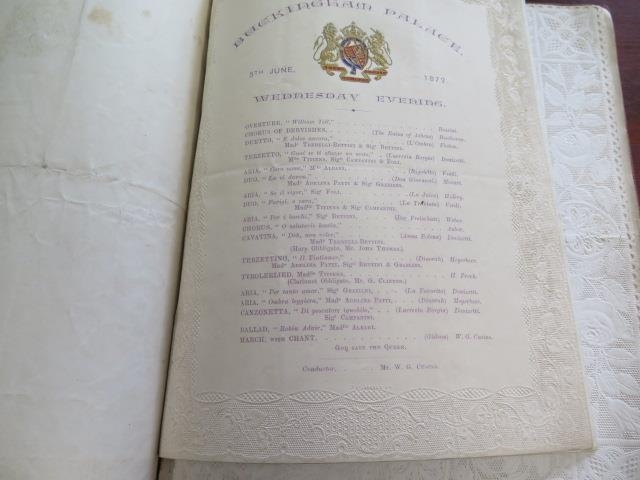 BUCKINGHAM PALACE.
5TH JUNE, 1872.
WEDNESDAY EVENING.
OVERTURE, "William Tell," Rossini.
CHORUS OF DERVISHES, (The Ruins of Athens) Beethoven.
DUETTO, "E dolce ancora," (L'Ombra) Flotow.
Made TREBELLI-BETTINI & Sigr BETTINI.
TERZETTO, "Guai se ti sfugge un moto," (Lucrezia Borgia) Donizetti.
Mlle TITIENS, Sigri CAMPANINI & FOLI.
ARIA, "Caro nome," Mlle ALBANI, (Rigoletto) Verdi.
DUO, "La ci darem," (Don Giovanni) Mozart.
Made ADELINA PATTI & Sigr GRAZIANI.
ARIA, "Se il rigor," Sigr FOLI, (La Juive) Halévy.
DUO, "Parigi, o cara," (La Traviata) Verdi.
Madlle TITIENS & Sigr CAMPANINI.
ARIA, "Per i boschi," Sigr BETTINI, (Der Freischutz) Weber.
CHORUS, "O salutaris hostia,"
CAVATINA, "Deh, non voler," (Anna Bolena) Donizetti.
Made TREBELLI-BETTINI.
(Harp Obbligato, Mr. JOHN THOMAS.)
TERZETTINO, "Il Fiatiamo," (Dinorah) Meyerbeer.
Made ADELINA PATTI, Sigri BETTINI & GRAZIANI.
TYROLERLIED, Madlle TITIENS, H. Proch.
(Clarionet Obbligato, Mr. G. CLINTON.)
ARIA, "Per tanto amor," Sigr GRAZIANI, (La Favorita) Donizetti.
ARIA, "Ombra leggiera," Made ADELINA PATTI, (Dinorah) Meyerbeer.
CANZONETTA, "Di pescatore ignobile," (Lucrezia Borgia) Donizetti.
Sigr CAMPANINI.
BALLAD, "Robin Adair," Madlle ALBANI.
MARCH, WITH CHANT, (Gideon) W. G. Cusins.
GOD SAVE THE QUEEN.
Conductor, Mr. W. G. CUSINS.